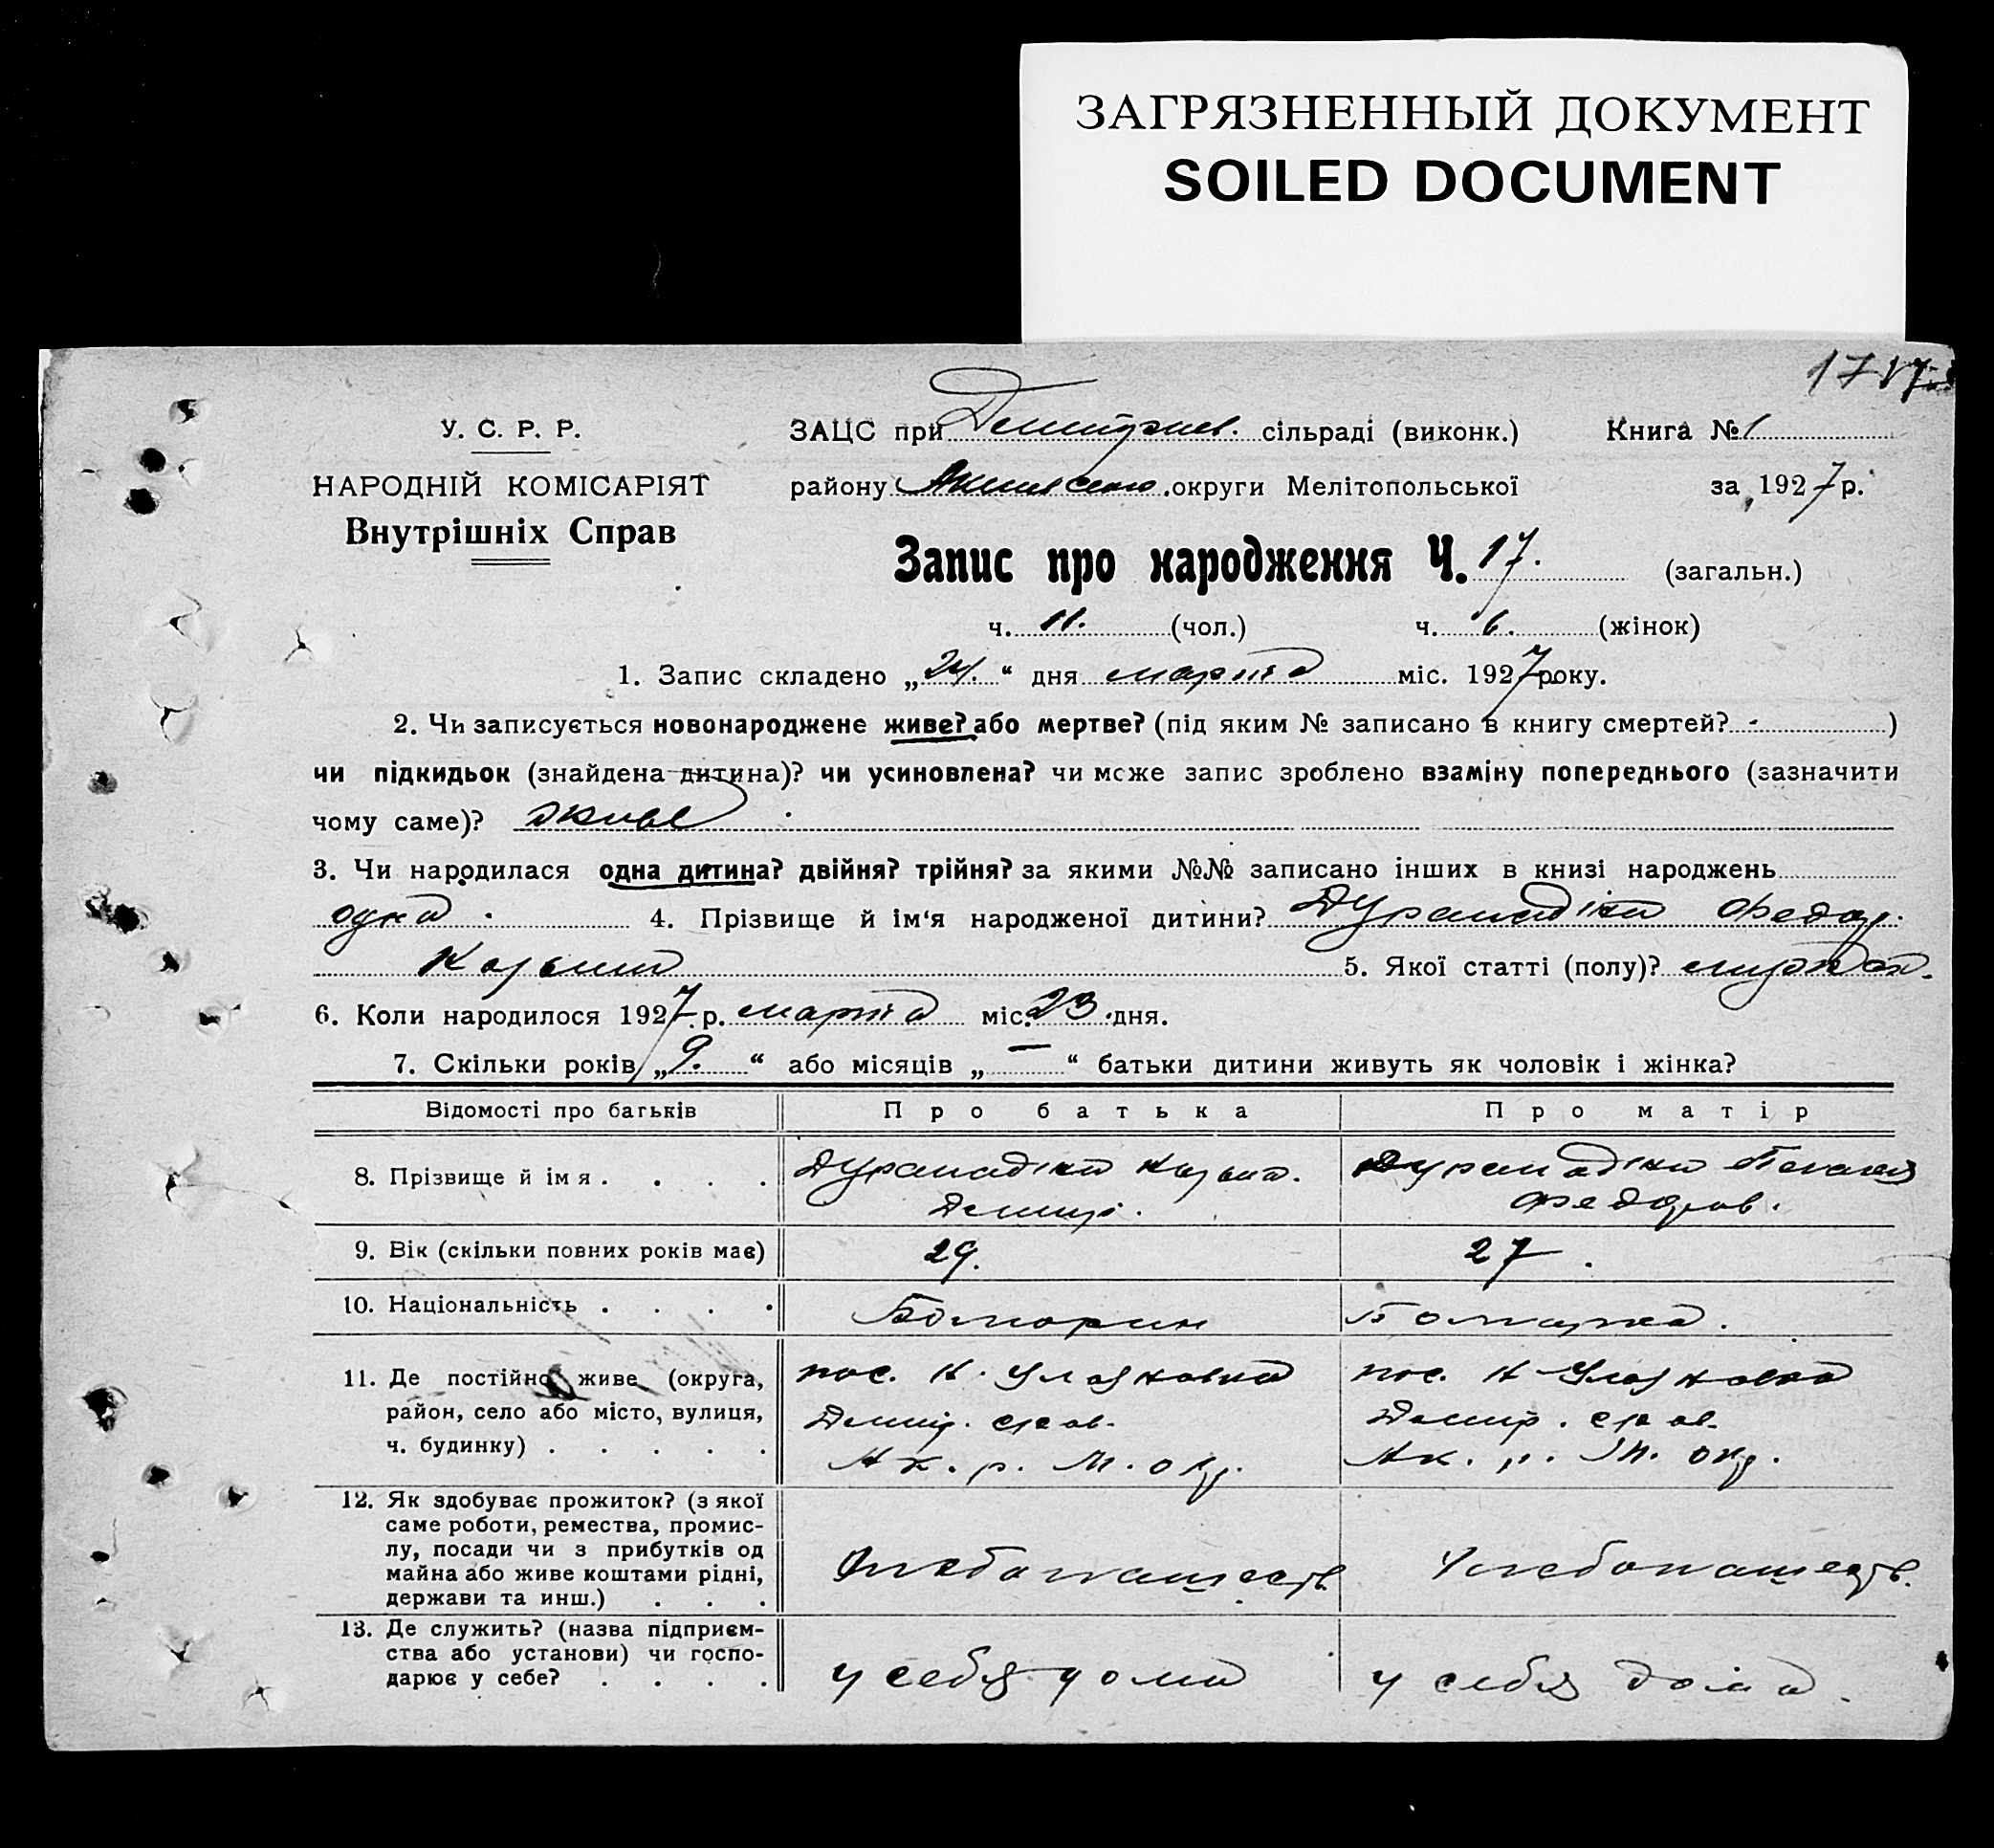 ЗАГРЯЗНЕННЫЙ ДОКУМЕНТ
SOILED DOCUMENT
17
У. С. Р. Р.
НАРОДНІЙ КОМІСАРІЯТ
Внутрішніх Справ
ЗАЦС при сільраді (виконк.) Книга № 1
району округи Мелітопольської за 1927 р.
Запис про народження Ч. 17. (загальн.)
ч. 11. (чол.) ч. 6. (жінок)
1. Запис складено „24.“ дня марта міс. 1927 року.
2. Чи записується новонароджене живе? або мертве? (під яким № записано в книгу смертей? - )
чи підкидьок (знайдена дитина)? чи усиновлена? чи може запис зроблено взаміну попереднього (зазначити
чому саме)? живе
3. Чи народилася одна дитина? двійня? трійня? за якими №№ записано інших в книзі народжень
одна. 4. Прізвище й ім‘я народженої дитини? Федор.
Козьмич 5. Якої статті (полу)?
6. Коли народилося 1927 р. марта міс. 23 дня.
7. Скільки років „9.“ або місяців „—“ батьки дитини живуть як чоловік і жінка?
Відомості про батьків Про батька Про матір
8. Прізвище й імя . . . . Козьма
Демит. Федоров.
9. Вік (скільки повних років має) 29. 27.
10. Національність . . . . Болгарин Болгарка.
11. Де постійно живе (округа, пос. пос.
район, село або місто, вулиця, Демит.
ч. будинку) . . . . . Ак. р. М. окр. Ак. р. М. окр.
12. Як здобуває прожиток? (з якої
саме роботи, ремества, промис-
лу, посади чи з прибутків од
майна або живе коштами рідні, Хлебопашеств Хлебопашеств.
держави та инш.) . . .
13. Де служить? (назва підприєм-
ства або установи) чи госпо-
дарює у себе? . . . . у себя дома у себя дома.